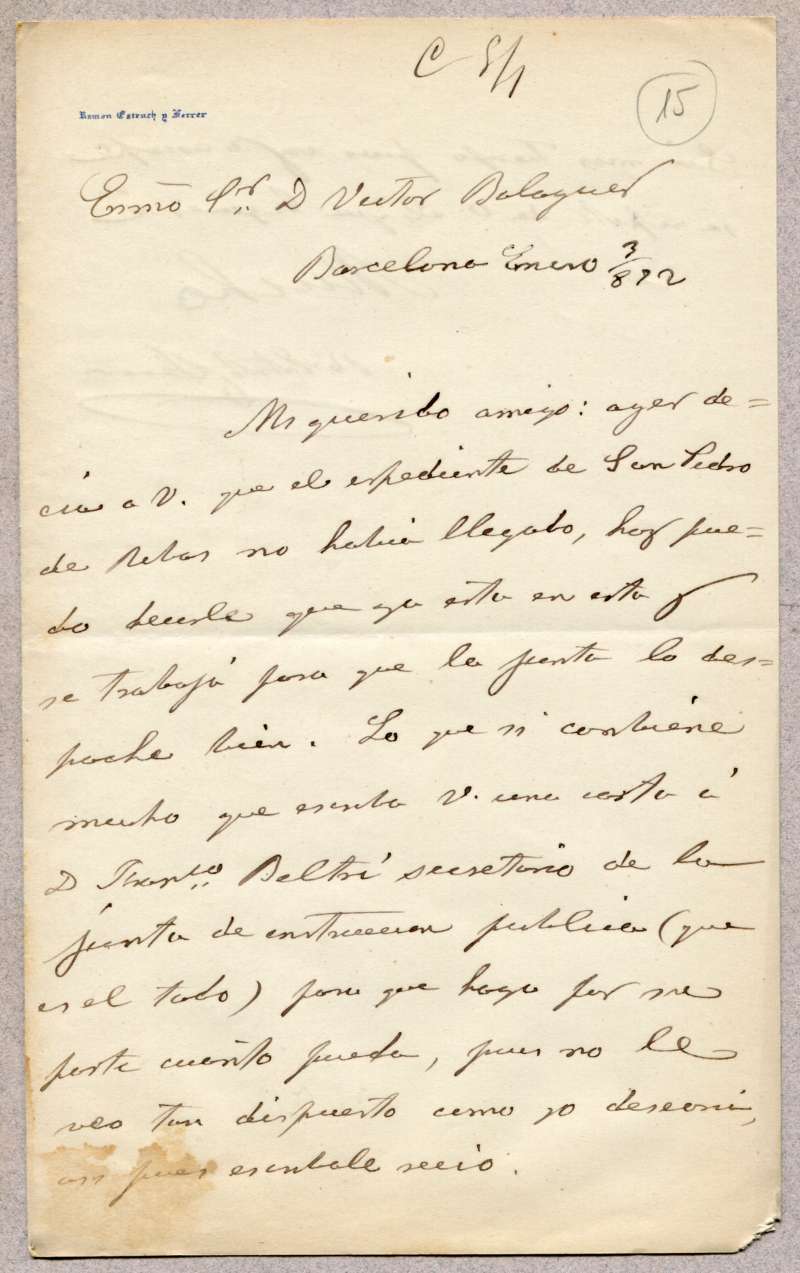 C 5/1
15
Ramon Estruch y Ferrer
Exmo Sr. D Victor Balaguer
Barcelona Enero 3/872
Mi querido amigo: ayer de=
cia a V. que el espediente de San Pedro
de Ribas no habia llegado, hoy pue=
do decirle que ya esta en esta y
se trabajá para que la junta lo des=
pache bien. Lo que si conbiene
mucho que escriba V. una carta á
D Franco Beltrí secretario de la
junta de instruccion publica (que
es el todo) para que haga por su
parte cuanto pueda, pues no le
veo tan dispuesto como yo desearia,
asi pues escribale recio.